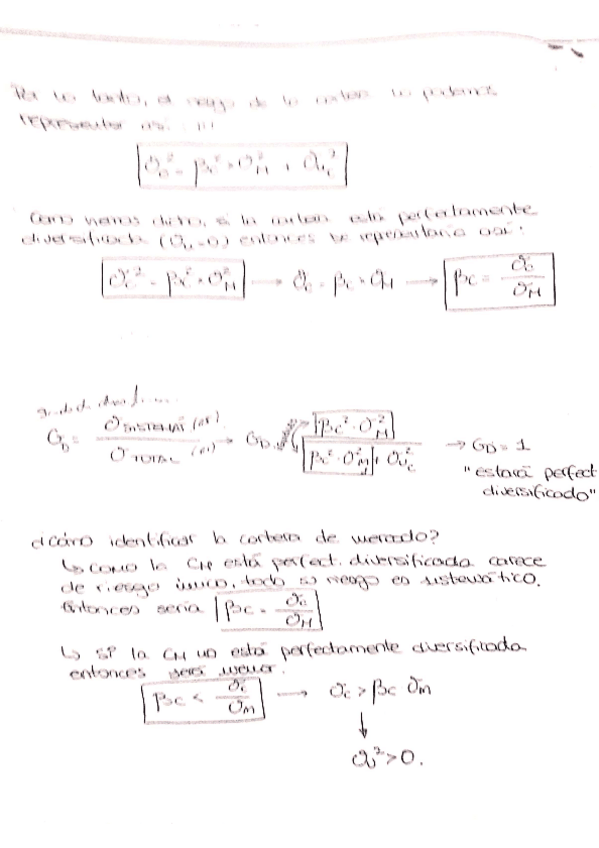 Por lo tanto, el riesgo de la cartera lo podemos
representar así:
σc² = βc² · σM² + σuc²
Como hemos dicho, si la cartera está perfectamente
diversificada (σu = 0) entonces se representaría así:
σc² = βc² · σM² → σc = βc · σM → βc = σc / σM
GD = σ SISTEMAT / σ TOTAL → GD = √ βc² · σM² / βc² · σM² + σuc² → GD = 1
"estará perfect
diversificado"
¿Cómo identificar la cartera de mercado?
↳ como la CM está perfect. diversificada carece
de riesgo único, todo su riesgo es sistemático.
Entonces sería βc = σc / σM
↳ Si la CM no está perfectamente diversificada
entonces será menor.
βc < σc / σm → σc > βc σm
↓
σu² > 0.